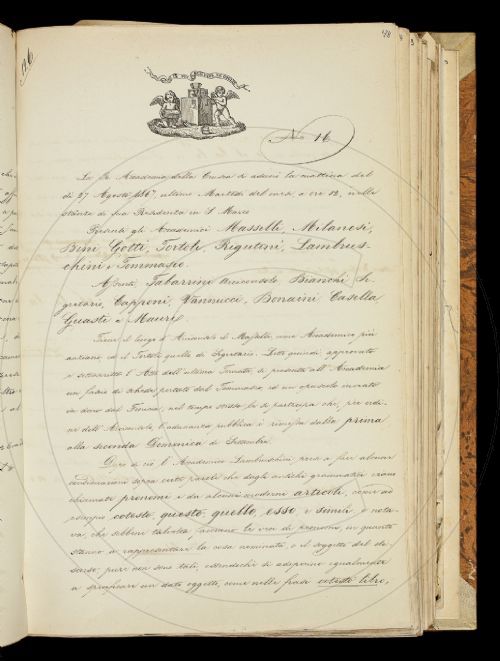 No 16
La R. Accademia della Crusca si adunò la mattina del
dì 27 Agosto 1867 ultimo Martedì del mese a ore 12, nelle
stanze di sua Residenza in S. Marco.
Presenti gli Accademici Masselli, Milanesi,
Bini, Gotti, Tortoli, Rigutini, Lambrus-
chini e Tommaseo.
Assenti, Tabarrini Arciconsolo, Bianchi Se-
gretario, Capponi, Vannucci, Bonaini, Casella
Guasti e Mauri.
Tiene il luogo d'Arciconsolo il Masselli, come Accademico più
anziano, ed il Tortoli quello di Segretario. Letto quindi approvato
e sottoscritto l'Atto dell'ultima Tornata, si presenta all'Accademia
un fascio di schede portate dal Tommaseo, ed un opuscolo inviato
in dono dal, nel tempo stesso le si partecipa che, per ordi-
ne dell'Arciconsolo l'adunanza pubblica è rimessa dalla prima
alla seconda Domenica di Settembre.
Dopo di ciò l'Accademico Lambruschini, prese a fare alcune
considerazioni sopra certe parole che dagli antichi grammatici erano
chiamate pronomi e da alcuni moderni articoli, come ad
esempio cotesto, questo, quello, esso, e simili; e nota-
va, che sebbene talvolta, facciano le veci di pronome, in quanto
stanno a rappresentare la cosa nominata, o il soggetto del di-
scorso; pure non sono tali, essendochè si adoprino egualmente
a specificare un dato oggetto, come nelle frasi cotesto libro,